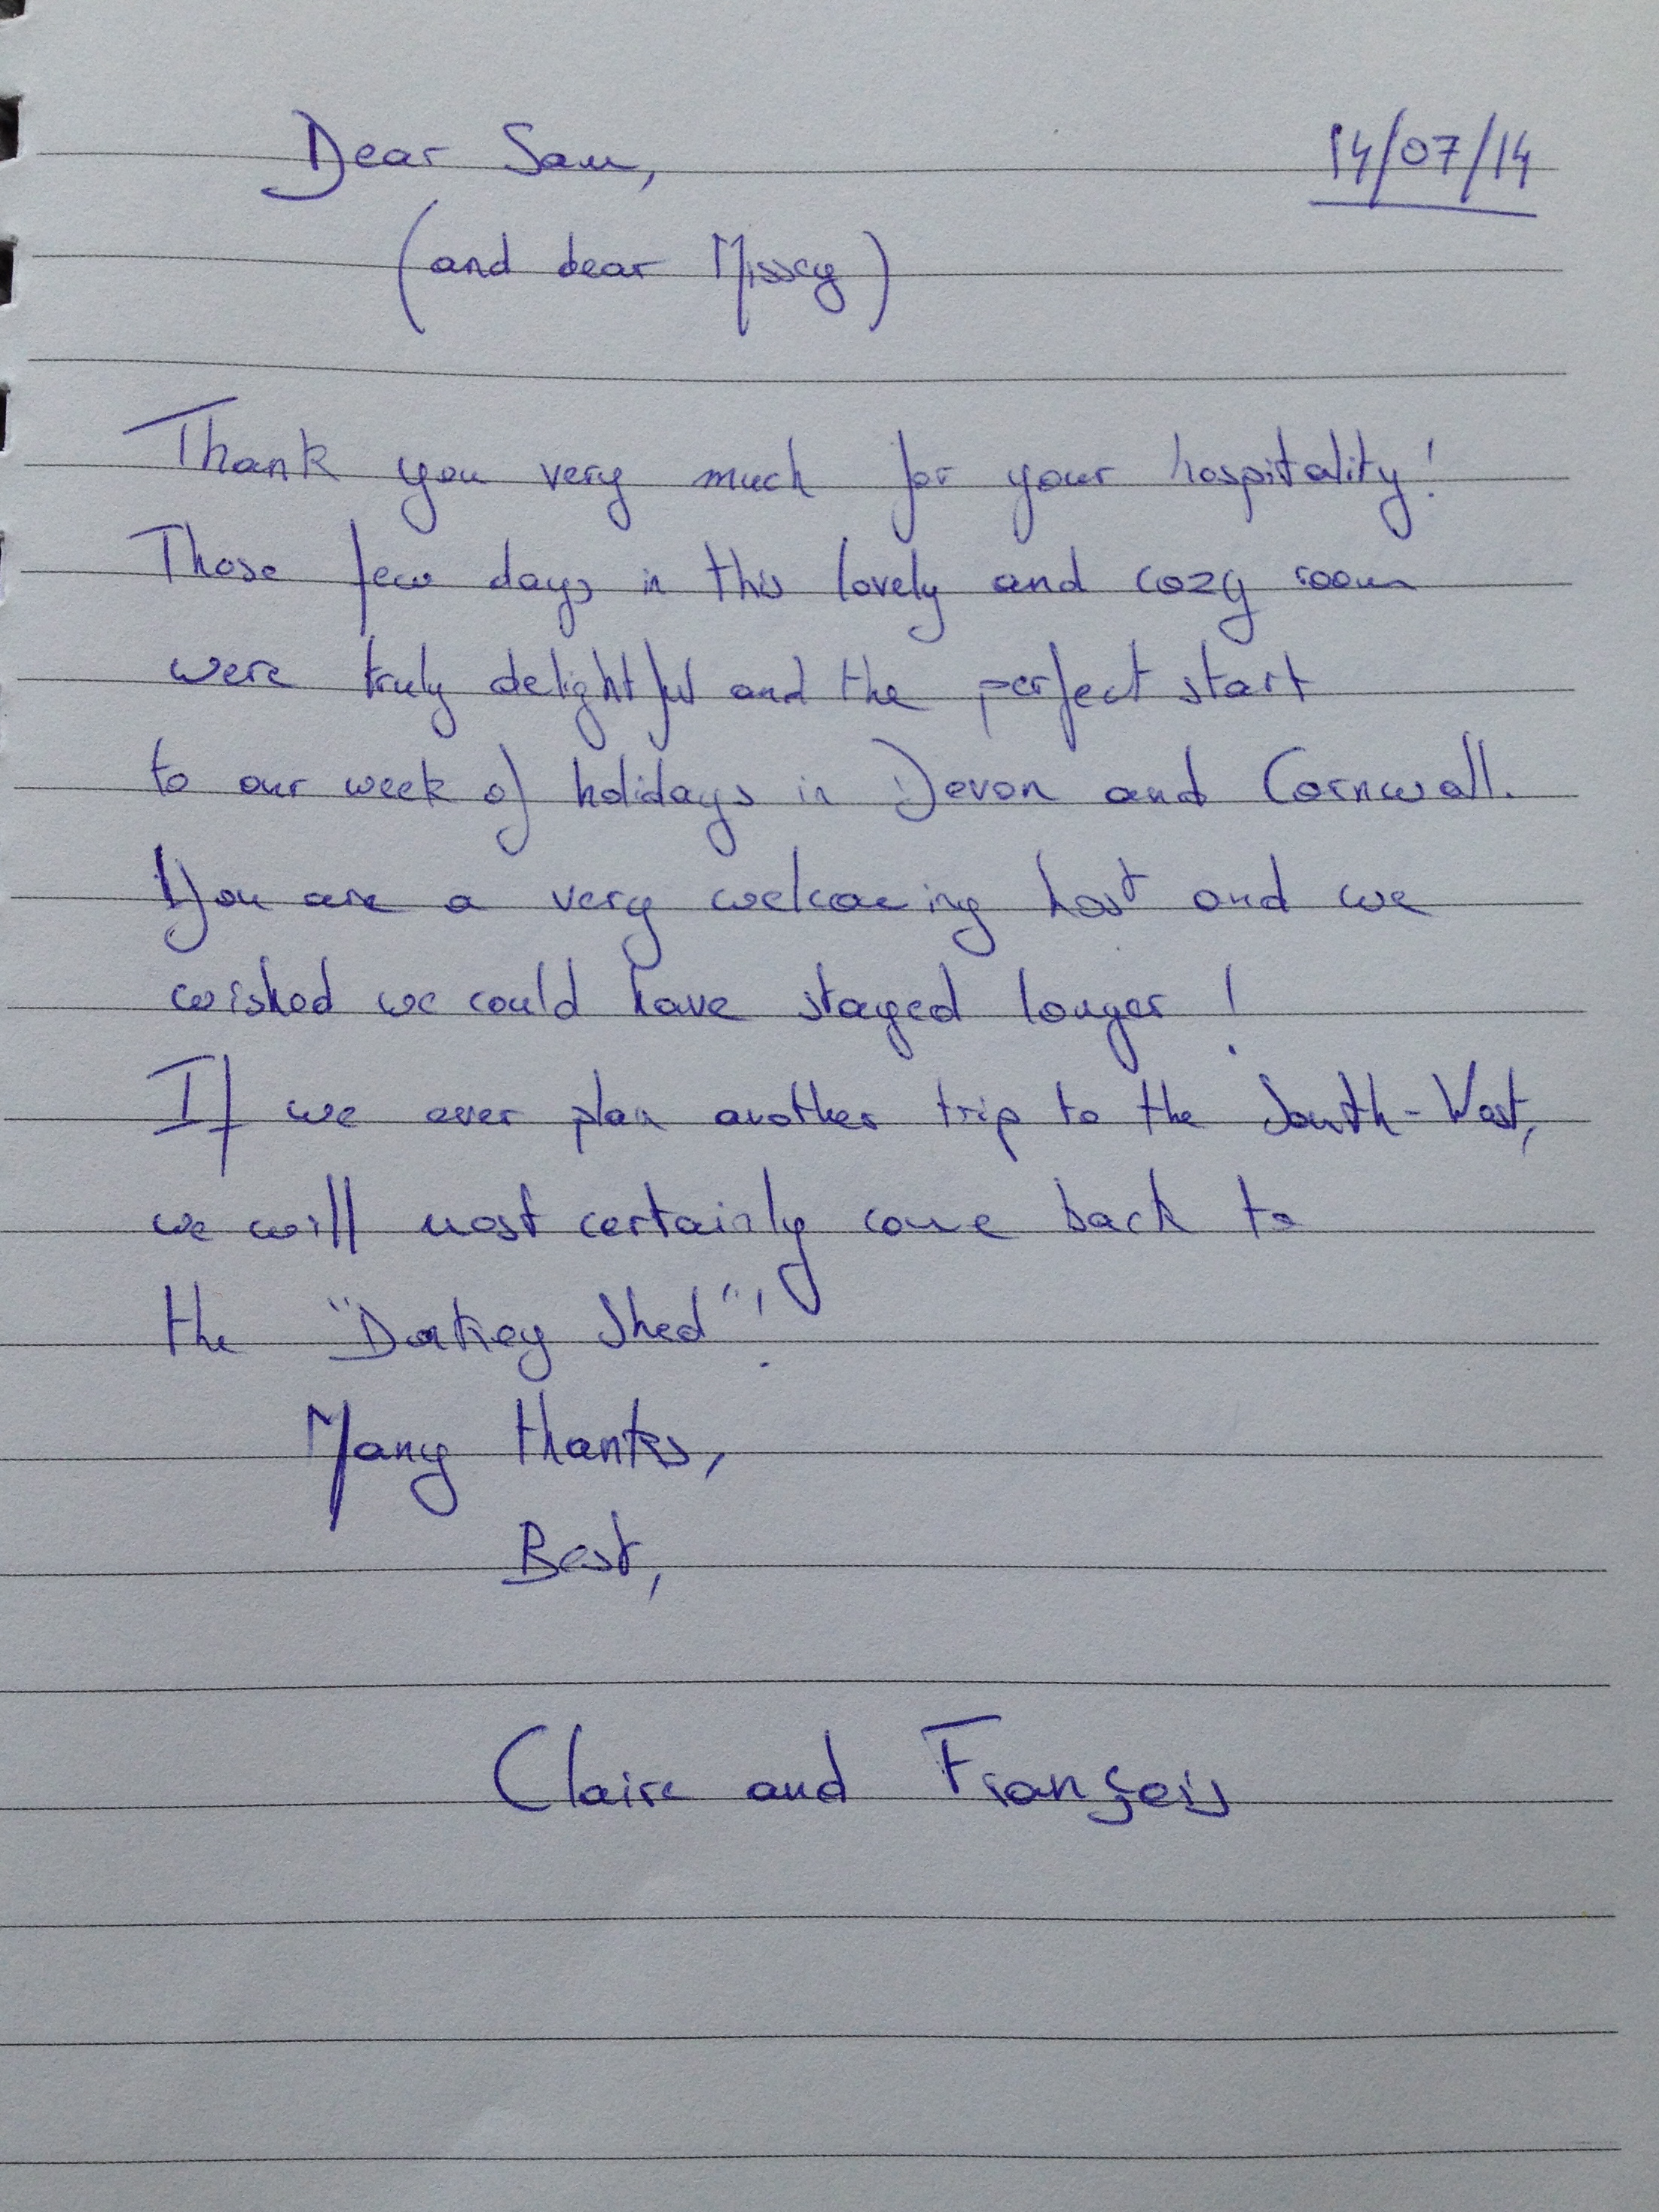 Dear Sam,
14/07/14
(and dear Missy)
Thank you very much for your hospitality!
Those few days in this lovely and cozy room
were truly delightful and the perfect start
to our week of holidays in Devon and Cornwall.
You are a very welcoming host and we
wished we could have stayed longer !
If we ever plan another trip to the South-West,
we will most certainly come back to
the "Donkey Shed"!
Many thanks,
Best,
Claire and François